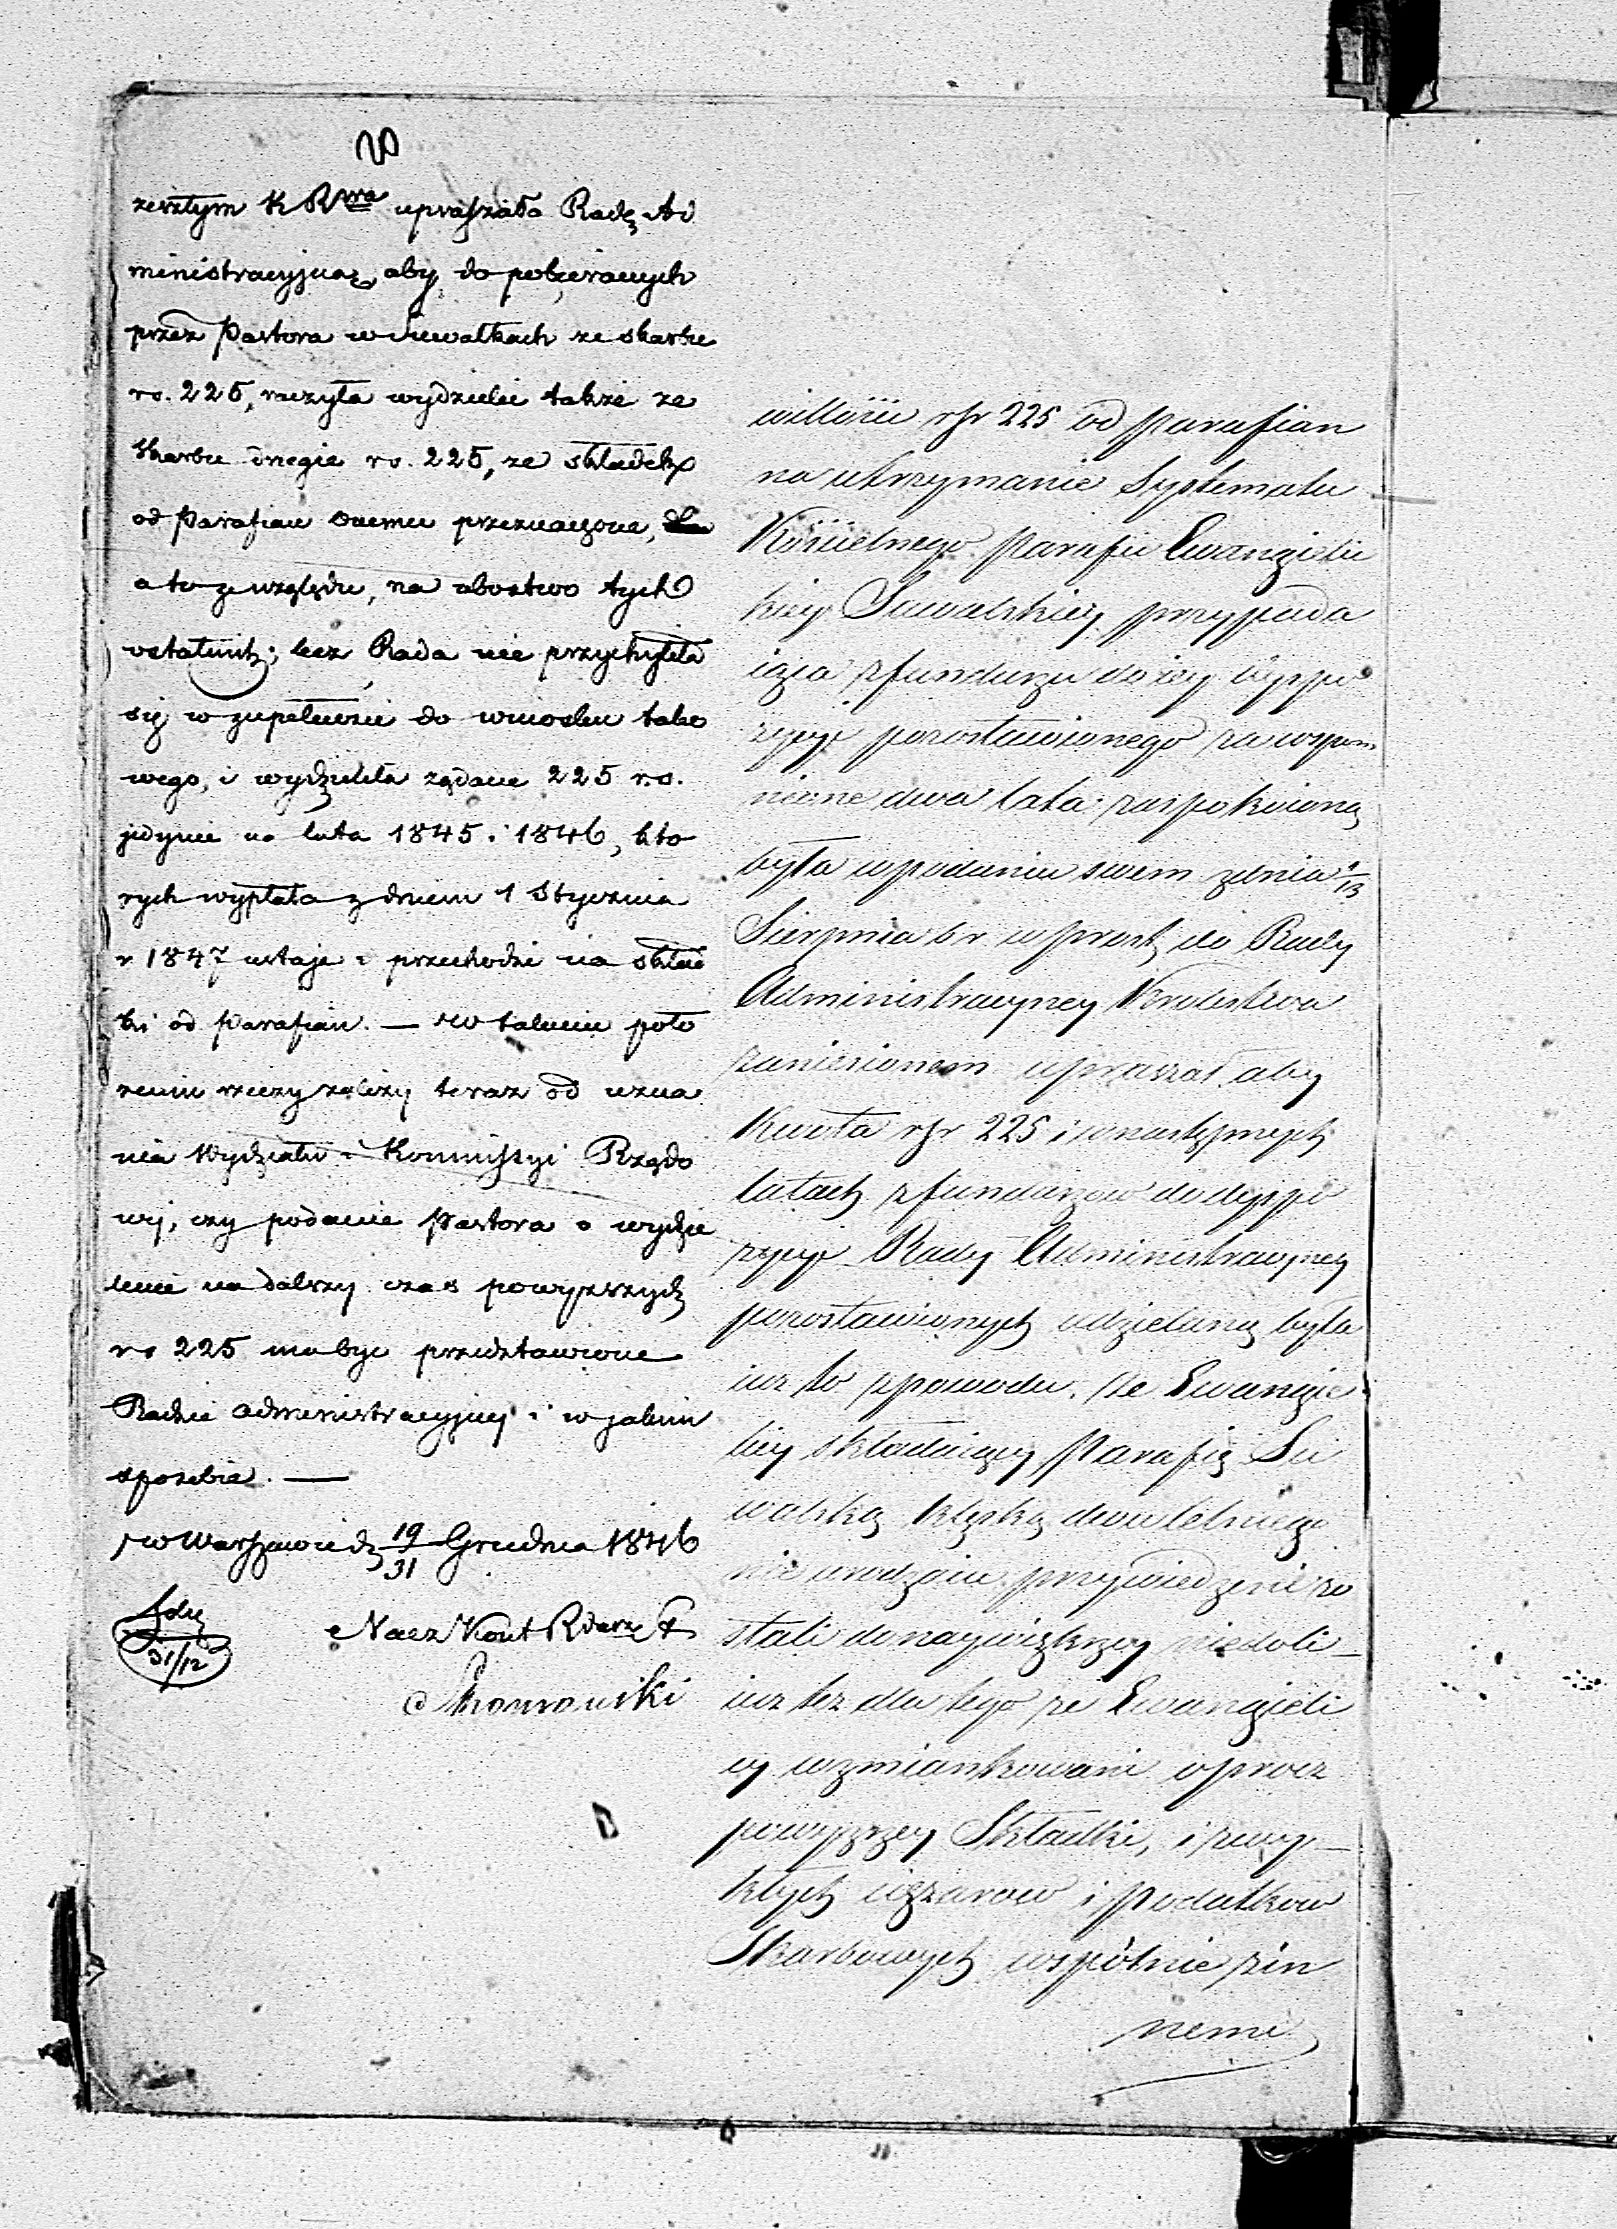 zeszłym K R wa upraszała Radę Ad
ministracyjną, aby do pobieranych
przez Pastora w Suwałkach ze skarbu
rs. 225, raczyła wydzielić także ze
Skarbu drugie rs. 225, ze składek
od Parafian onemu przeznaczone,
a to ze względu, na ubóstwo tych
ostatnich; lecz Rada nie przychyliła
się w zupełności do wniosku tako
wego, i wydzieliła żądane 225 rs.
jedynie na lata 1845 i 1846, któ
rych wypłata z dniem 1 Stycznia
r 1847 ustaje i przechodzi na skład
ki od Parafian. — W takiem poło
żeniu rzeczy zależy teraz od uzna
nia Wydziału i Kommissyi Rządo
wej, czy podanie Pastora o wydzie
lenie na dalszy czas powyższych
rs 225 ma być przedstawione
Radzie Administracyjnej i w jakim
sposobie. —
w Warszawie d 19/31 Grudnia 1846
31/12
Nacz Kont
wittöw rsr 225 od Parafian
na utrzymanie Systematu
Kościelnego Parafii Ewangielic
kiej Suwalskiey przypada
iąca z funduszu do iey dyspo
zycyi pozostawionego za wspom
nione dwa lata zaspokoioną
była w podaniu swem z dnia 1/13
Sierpnia b r wprost do Rady
Administracyiney Krolestwa
zaniesionem upraszał, aby
Kwota rsr 225 i w następnych
latach z funduszow do dyspo
zycyi Rady Administracyiney
pozostawionych udzielaną była
iuż to z powodu, że Ewangie
licy składaiący Parafią Su
walską klęską dwuletniego
nieurodzaiu przywiedzeni zo
stali do naywiększey niedoli —
iuż też dla tego że Ewangieli
cy wzmiankowani oprocz
powyższey Składki, i zwy —
kłych ciężarow i Podatkow
Skarbowych wspólnie z in
nemi